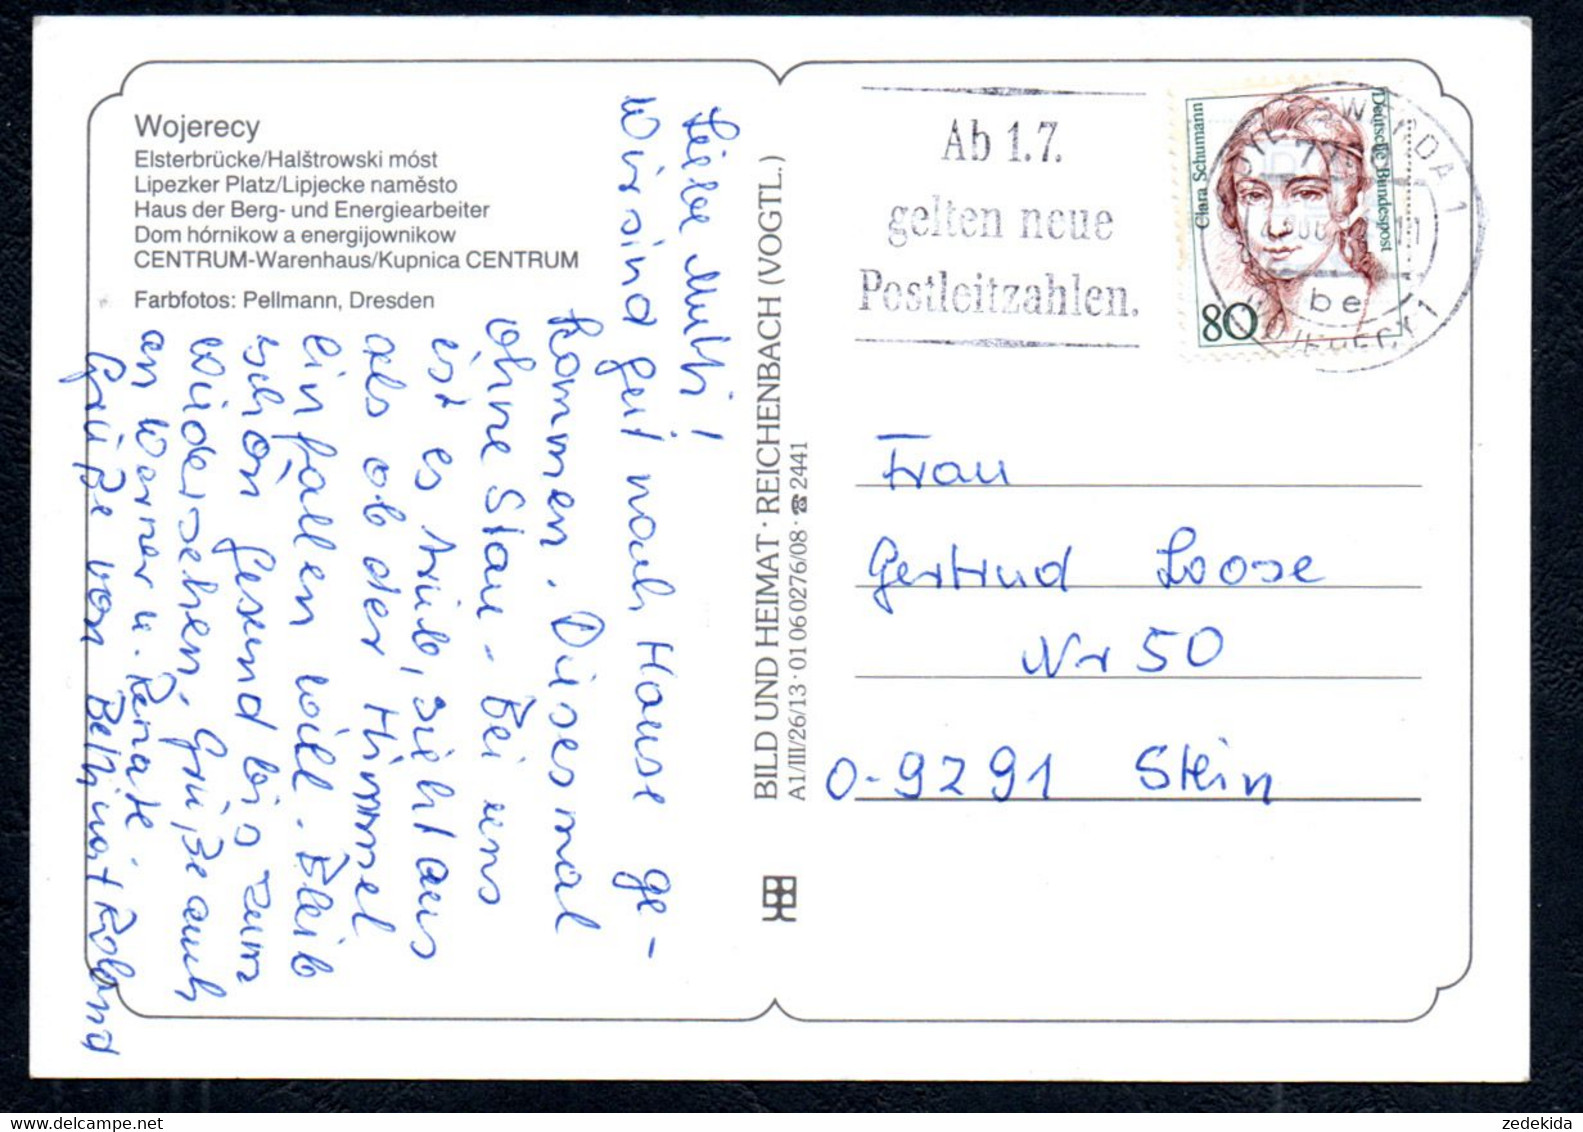 Wojerecy
Elsterbrücke/Halštrowski móst
Lipezker Platz/Lipjecke naměsto
Haus der Berg- und Energiearbeiter
Dom hórnikow a energijownikow
CENTRUM-Warenhaus/Kupnica CENTRUM
Farbfotos: Pellmann, Dresden
Liebe Mutti!
Wir sind gut nach Hause ge-
kommen. Diesmal
ohne Stau. Bei uns
ist es trüb, sieht aus
als ob der Himmel
einfallen will. Bleib
schön gesund bis zum
Wiedersehen, Grüße auch
an Werner u. Renate.
Grüße von Roland
BILD UND HEIMAT · REICHENBACH (VOGTL.)
A1/III/26/13 · 01 06 0276/08 · ☎ 2441
Ab 1.7.
gelten neue
Postleitzahlen.
Clara Schumann
Deutsche Bundespost
80
be
Frau
Gertrud Loose
Nr 50
O-9291 Stein
zedekida